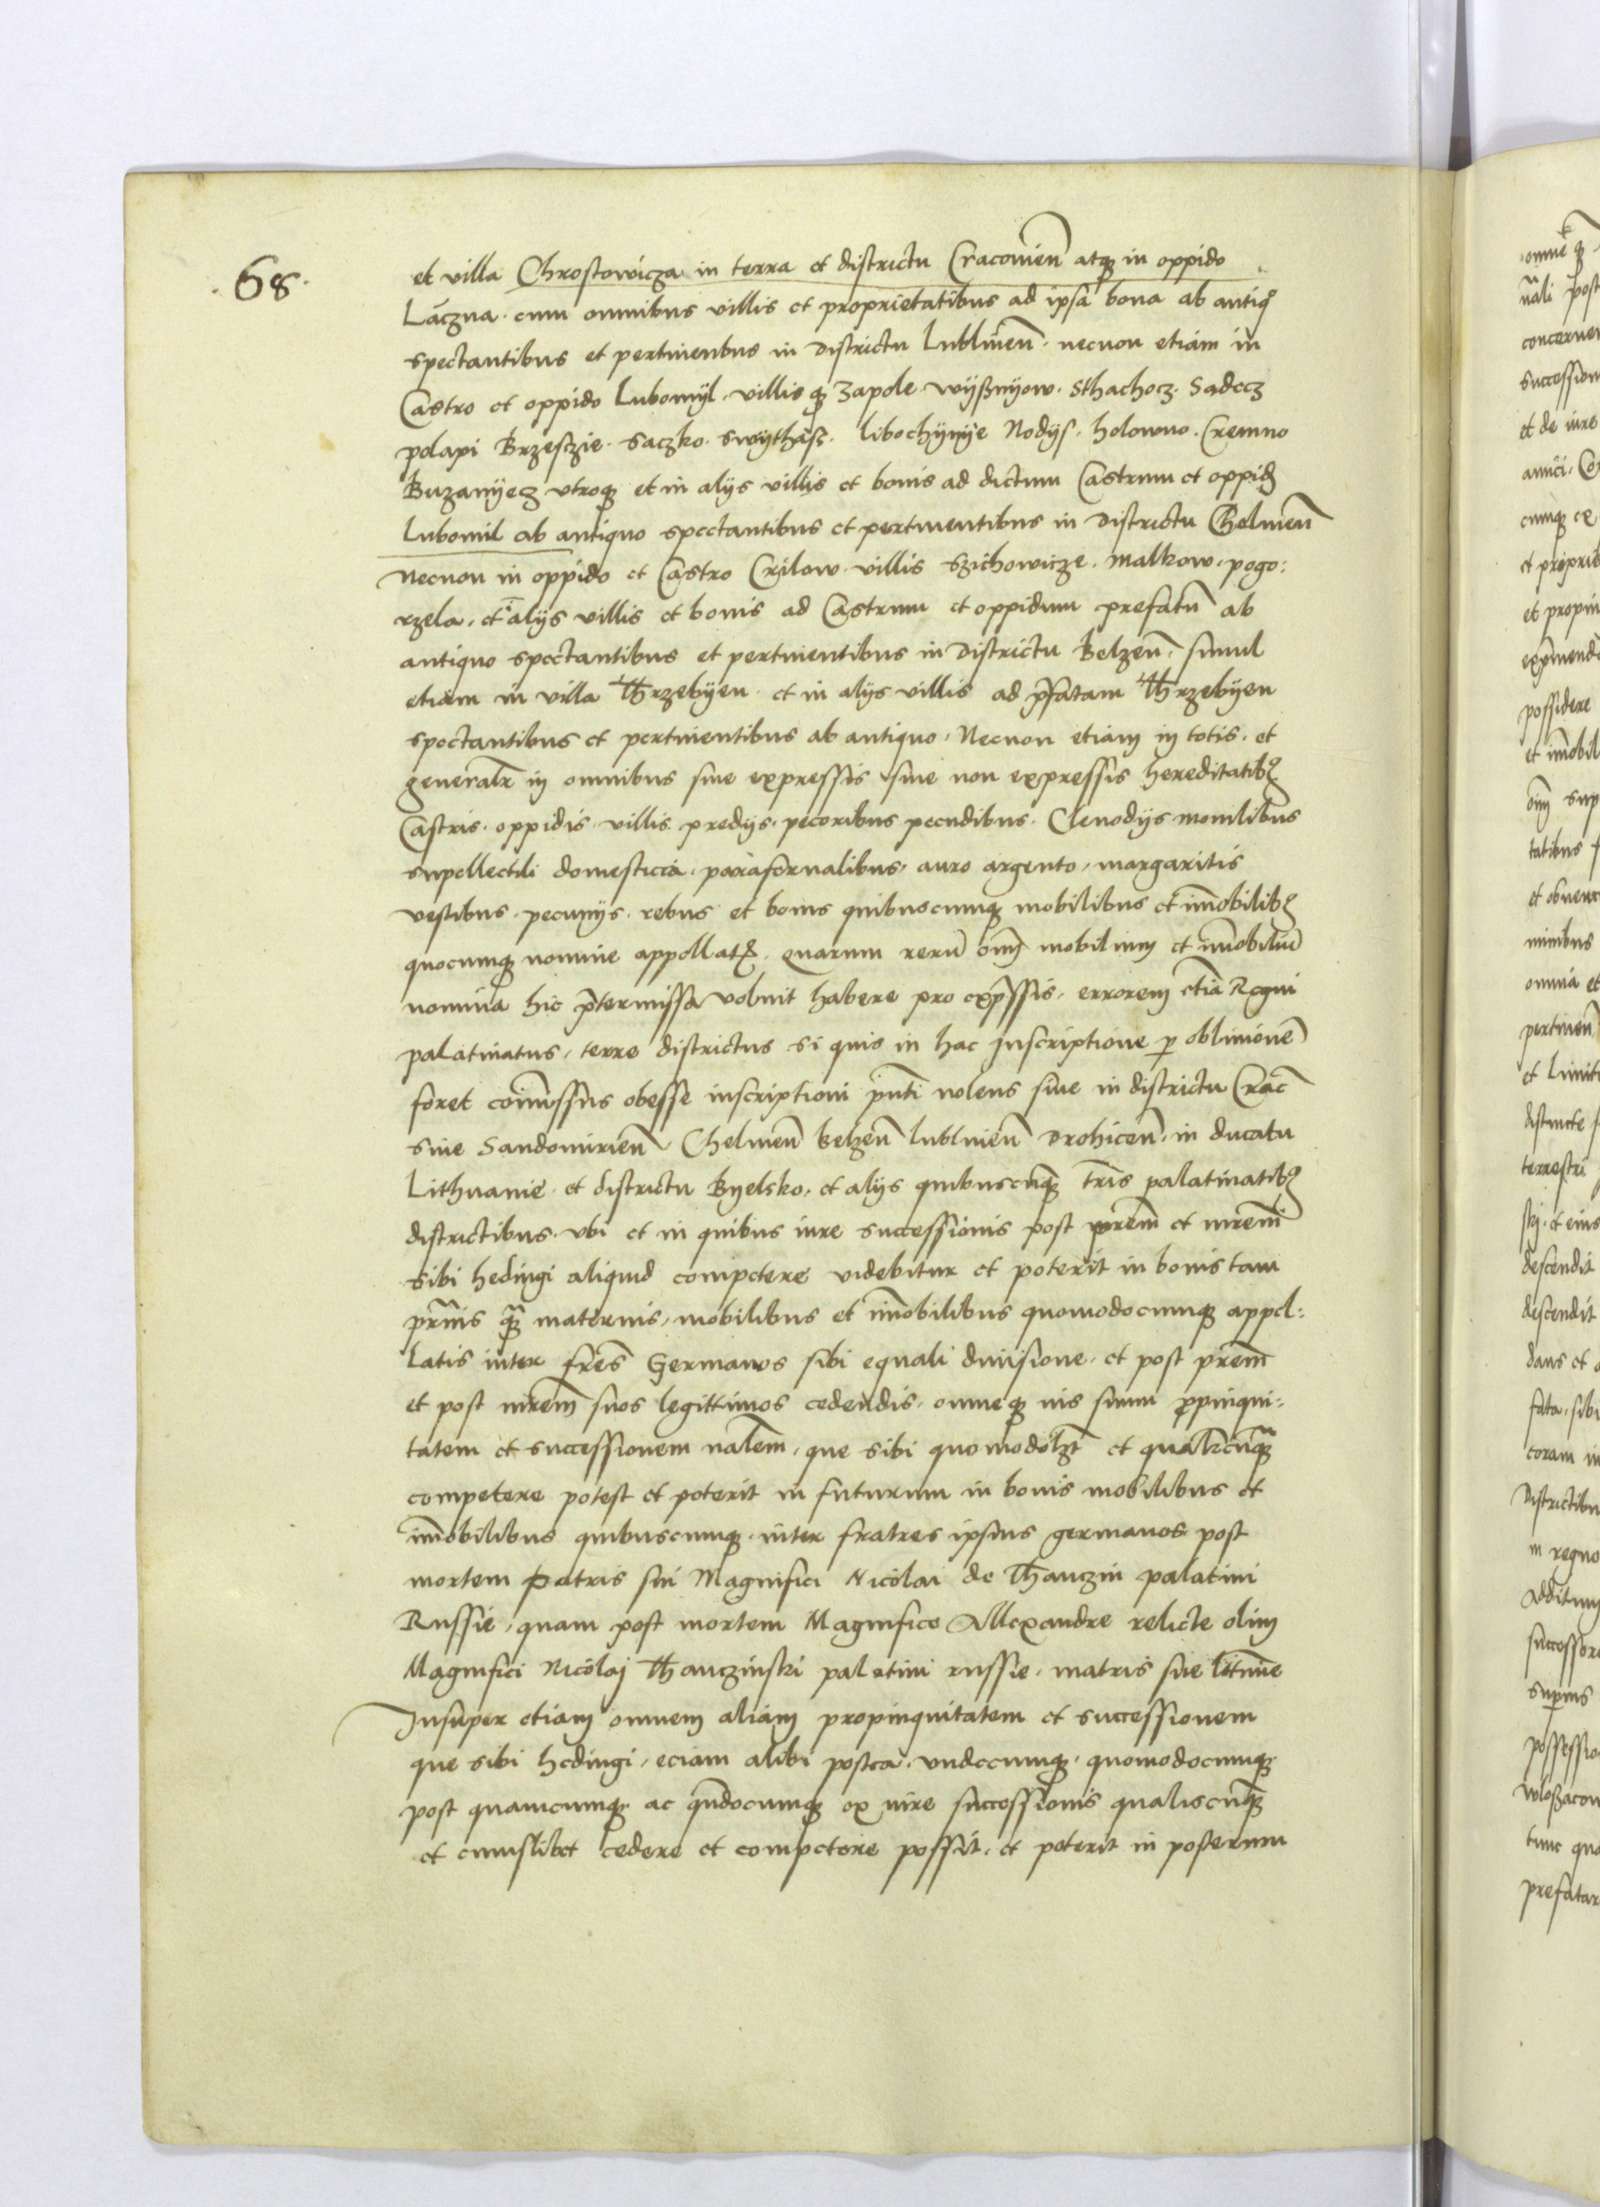 68.
et villa Chrostowicza in terra et districtu Cracovien̄ atq̨ in oppido
Lączna. cum omnibus villis et proprietatibus ad ipsā bona ab antiqº
spectantibus et pertinentibus in districtu Lublinen̄. necnon etiam in
Castro et oppido Lubomyl. villisq̨ Zapole. wyßnyow. Sthachocz. Sadecz
polapi Brzesczie. saczko. swythasz. libochynye Nodys. holowno. Cremno
Buzanyecz utroq̨ et in alijs villis et bonis ad dictum Castrum et oppid̨
Lubomil ab antiquo spectantibus et pertinentibus in districtu Chelmen̄
Necnon in oppido et Castro Crilow villis Szichowicze. malkow. pogo:
rzela. et ī alijs villis et bonis ad Castrum et oppidum prefatū ab
antiquo spectantibus et pertinentibus in districtu Belzen̄. simul
etiam in villa Thrzebyen. et in alijs villis ad p̄fatam Thrzebyen
spectantibus et pertinentibus ab antiquo. Necnon etiam in totis. et
generalr̄ in omnibus sive expressis sive non expressis hereditatibꝰ
Castris. oppidis. villis. predijs. pecoribus pecudibus. Clenodijs monilibus
supellectili domestica. parafernalibus. auro argento. margaritis
vestibus. pecunijs. rebus et bonis quibuscumq̨ mobilibus et im̄obilibꝰ
quocumq̨ nomine appellatꝭ. quarum rerū om̄ mobilium et im̄obiliū
nomina hic p̄termissa voluit habere pro exp̄ssis. errorem etiā Regni
palatinatus, terre districtus si quis in hac inscriptione ꝑ oblivionē
foret com̄issus obesse inscriptioni pn̄ti nolens sive in districtu Crac̄
sive Sandomirien̄ Chelmen̄ belzen̄ lublinen̄ drohicen̄. in ducatu
Lithuanie. et districtu Byelsko. et alijs quibuscūq̨ tr̄is palatinatibꝰ
districtibus. ubi et in quibus iure successionis post pr̄em et mr̄em
sibi hedingi aliquid competere videbitur et poterit in bonis tam
pr̄nis q̄ maternis, mobilibus et im̄obilibus quomodocumq̨ appel:
latis inter fr̄es Germanos sibi equali divisione. et post pr̄em
et post mr̄em suos legittimos cedendis. omneq̨ ius suum ꝓpinqui:
tatem et successionem nalēm. que sibi quomodolz̄t et qualr̄cūq̨
competere potest et poterit in futurum in bonis mobilibus et
im̄obilibus quibuscumq̨. inter fratres ipsius germanos post
mortem patris sui Magnifici Nicolai de Thanczin palatini
Russie, quam post mortem Magnifice Allexandre relicte olim
Magnifici Nicolaj Thanczinski palatini russie. matris sue lit̄me
Insuper etiam omnem aliam propinquitatem et successionem
que sibi hedingi, eciam alibi postea. undecumq̨. quomodocumq̨
post quamcumq̨. ac qn̄documq̨ ex iure successionis qualiscūq̨
et cuiuslibet cedere et competere possit. et poterit in posterum